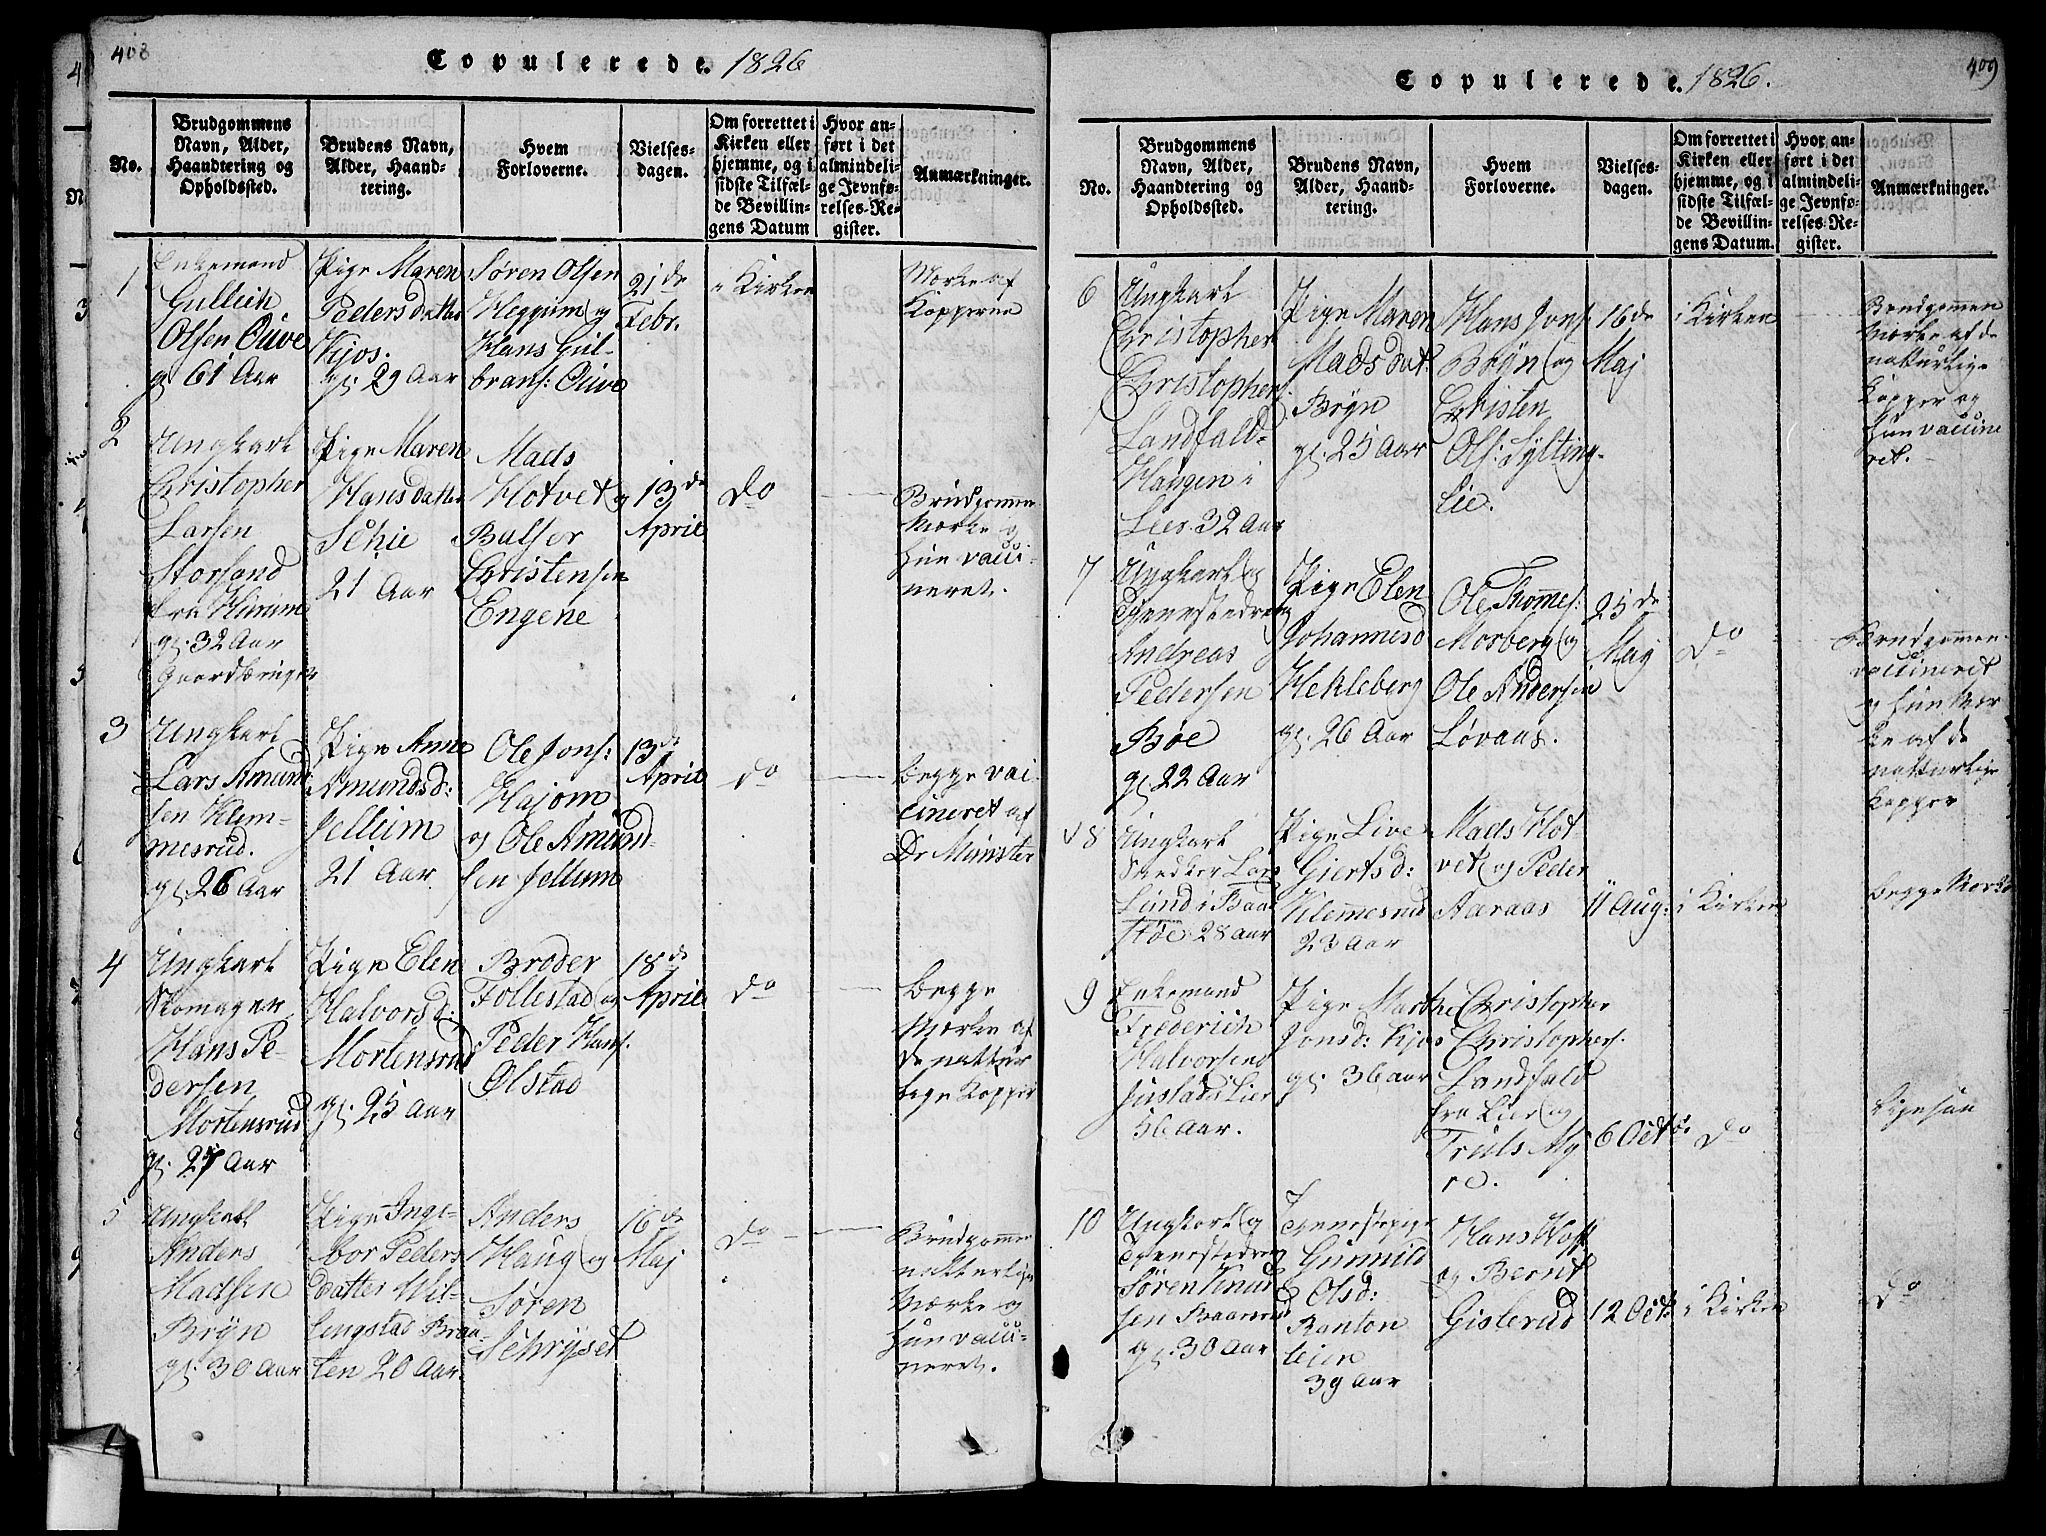 408
Copulerede. 1826
No.
Brudgommens
Navn, Alder,
Haandtering og
Opholdssted.
Brudens Navn,
Alder, Haand-
tering.
Hvem
Forloverne.
Vielses-
dagen.
Om forrettet i
Kirken eller
hjemme, og i
sidste Tilfæl-
de Bevillin-
gens Datum
Hvor an-
ført i det
almindeli-
ge Jevnfø-
relses-Re-
gister.
Anmærkninger.
1
Enkemand
Gullich
Olsen Ouve
gl 61 Aar
Pige Maren
Pedersdatter
Kjos.
gl. 29 Aar
Søren Olsen
Heggum og
Hans Gul-
brans: Ouve
21de
Febr.
i Kirken
Mærke af
Kopperne
2
Ungkarl
Christopher
Larsen
Storsand
fra Hurum
gl. 32 Aar
Gaardbruger
Pige Maren
Hansdatter
Schie
21 Aar
Mads
Hotvet og
Balser
Christensen
Engene
13de
April
Do
Brudgommen
Mærke og
hun vacci-
neret.
3
Ungkarl
Lars Amund
sen Klem-
mesrud.
gl. 26 Aar
Pige Anne
Amundsd:
Jellum
21 Aar
Ole Jons:
Hajom
og Ole Amund-
sen Jellum
13de
April
do
begge vac-
cineret af
Dr Munster
4
Ungkarl
Skomager
Hans Pe-
dersen
Mortensrud
gl. 27 Aar
Pige Elen
Halvorsd:
Mortensrud
gl. 25 Aar
Broder
Follestad og
Peder Hans.
Ølstad
18de
April
Do
begge
Mærke af
de nattur
lige Kopper
5
Ungkarl
Anders
Madsen
Brÿn
gl. 30 Aar
Pige Inge-
bor Peders
datter Wil-
lengstad Braa-
ten 20 Aar.
Anders
Haug og
Søren
Schrÿset
16de
Maj
Do
Brudgommen
natturlige
Mærke og
hun vacci-
neret.
409
Copulerede. 1826.
No.
Brudgommens
Navn, Alder,
Haandtering og
Opholdssted.
Brudens Navn,
Alder, Haand-
tering.
Hvem
Forloverne.
Vielses-
dagen.
Om forrettet i
Kirken eller
hjemme, og i
sidste Tilfæl-
de Bevillin-
gens Datum.
Hvor an-
ført i det
almindeli-
ge Jevnfø-
relses-Re-
gister.
Anmærkninger.
6
Ungkarl
Christopher
Christophers.
Landfald-
Haugen i
Lier. 32 Aar
Pige Maren
Madsdat:
Brÿn
gl. 25 Aar
Hans Jons.
Brÿn og
Christen
Ols: Sylting-
lie.
16de
Maj
i Kirken
Brudgommen
Mærke af de
natturlige
Kopper og
hun vaccine
ret.
7
Ungkarl og
Tjenestedreng
Andreas
Pedersen
Bøe
gl. 22 Aar
Pige Elen
Johannesd
Hekleberg
gl. 26 Aar
Ole Thomes:
Morberg og
Ole Andersen
Løvaas.
25de
Maj
Do
Brudgommen
vaccineret
og hun Mær
ke af de
natturlige
Kopper
8
Ungkarl
Snedker Lars
Lund i Baar
støe. 28 Aar
Pige Live
Giertsd:
Klemmesrud
23 Aar
Mads Hot
vet og Peder
Aaraas
11 Aug:
i Kirken
begge Mærke
9
Enkemand
Frederich
Halvorsen
Justad i Lier
56 Aar.
Pige Marthe
Jonsd: Kjos
gl. 36 Aar
Christopher
Christophers.
Landfald
fra Lier og
Truls My
re.
6 Octbr
Do
Ligesaa
10
Ungkarl og
Tjenestedreng
Søren Knud
sen Baarsrud
gl. 30 Aar
Tjenestepige
Gunnild
Olsd:
Ranton
leien
39 Aar
Hans Hoff
og Bernt
Gisterud
12 Oct.
i Kirken
Do